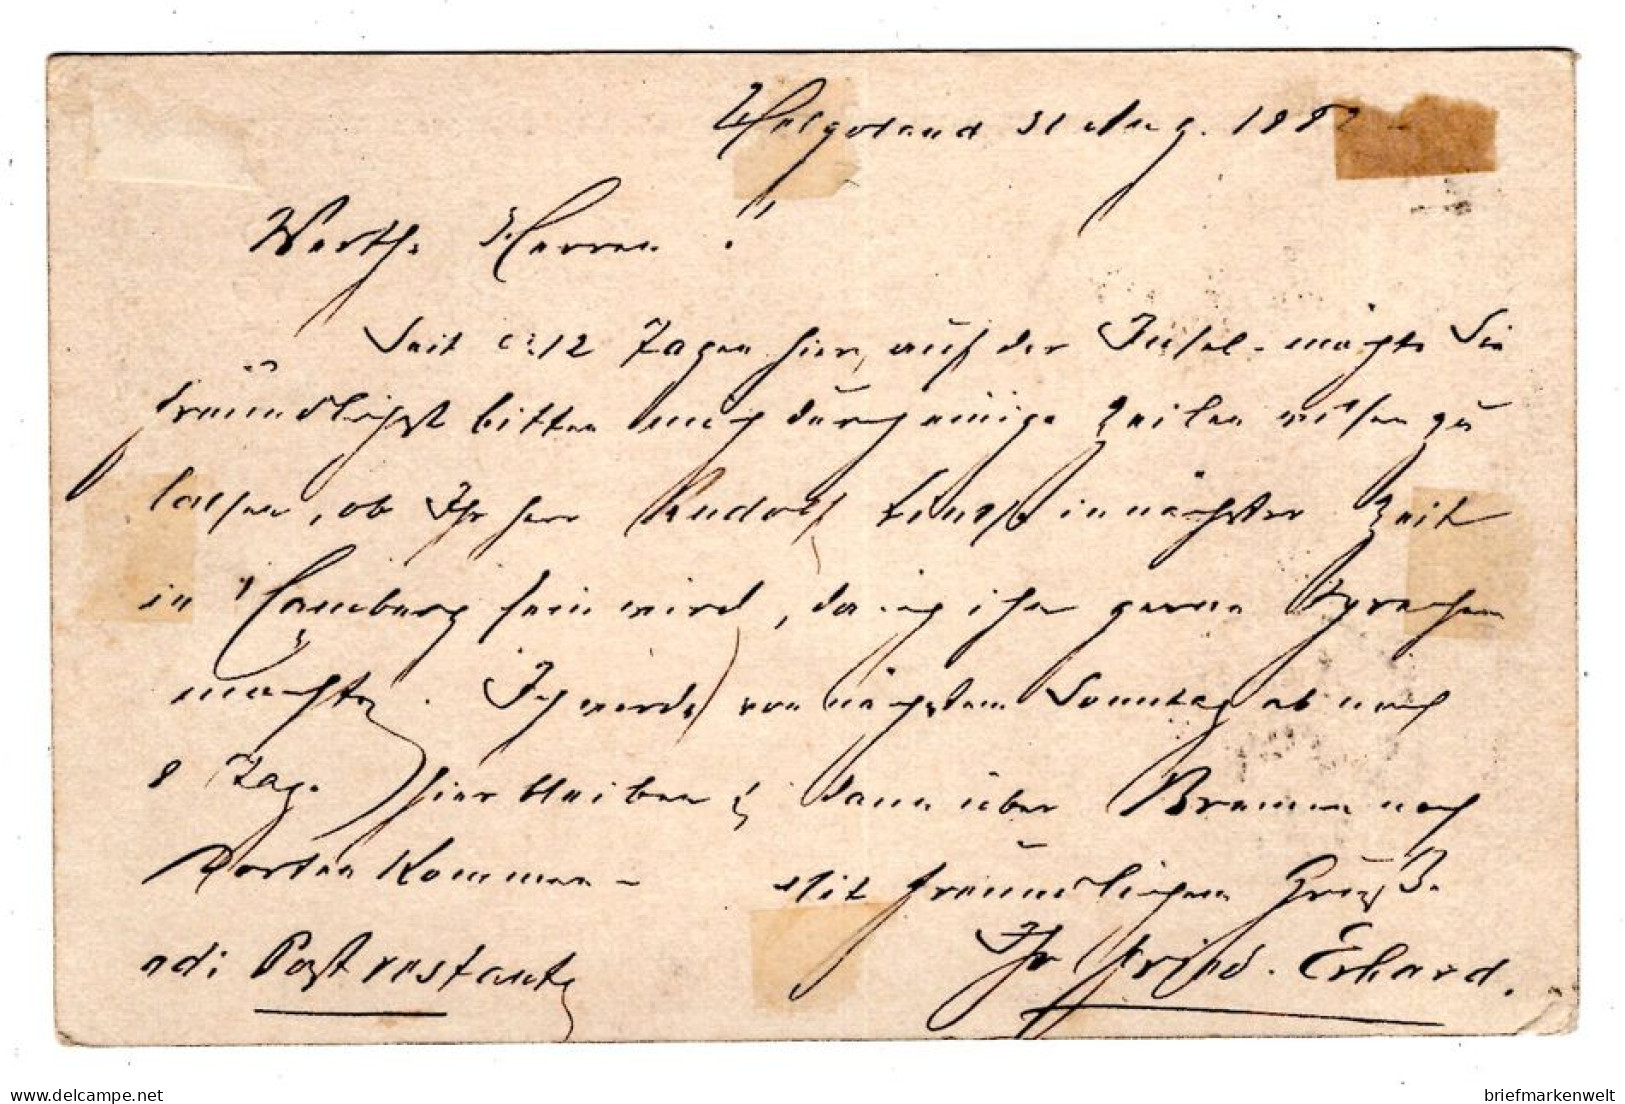 Helgoland 31 Aug. 1882
Werthe Herren!
Seit c: 12 Tagen hier, auf der Insel - möchte Sie
freundlichst bitten mich durch einige Zeilen wissen zu
lassen, ob Ihr Herr Rudolf in nächster Zeit
in Hamburg sein wird, da ich ihn gerne sprechen
möchte. Ich werde von nächstem Sonntag ab noch
8 Tage hier bleiben & dann über Bremen nach
dorten kommen -
Mit freundlichem Gruße
Ihr Fried. Erhard.
adr: Post restante
briefmarkenwelt
www.delcampe.net